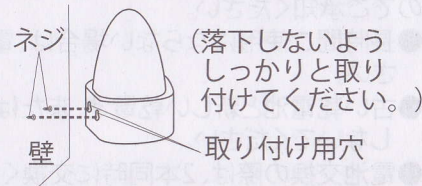 ネジ
壁
(落下しないよう
しっかりと取り
付けてください。)
取り付け用穴